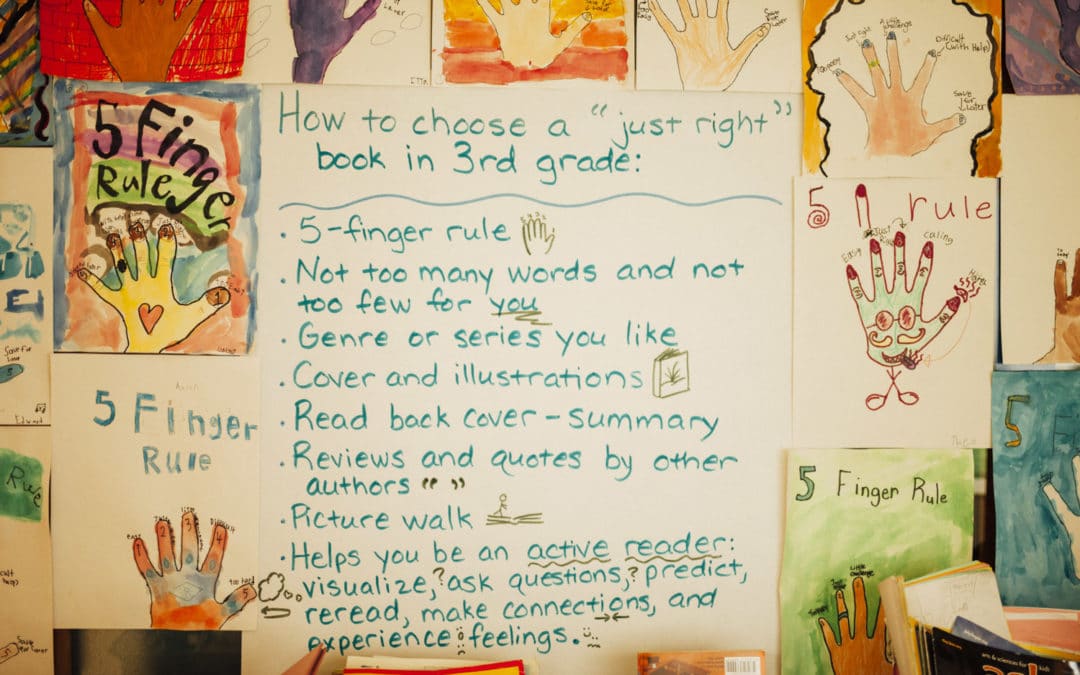 How to choose a "just right"
book in 3rd grade:
· 5-finger rule
· Not too many words and not
too few for you
· Genre or series you like
· Cover and illustrations
· Read back cover - summary
· Reviews and quotes by other
authors " "
· Picture walk
· Helps you be an active reader:
visualize, ? ask questions, ? predict,
reread, make connections, and
experience feelings.
5 Finger
Rule
5 Finger
Rule
easy
1
2
3
4
5
too hard
Just right
A little challenge
Difficult
(with Help)
Save
for
Later
5
rule
Easy
Just
Right
Hard
5 Finger Rule
Little
challenge
5
Rule
Save for
Later
Edward